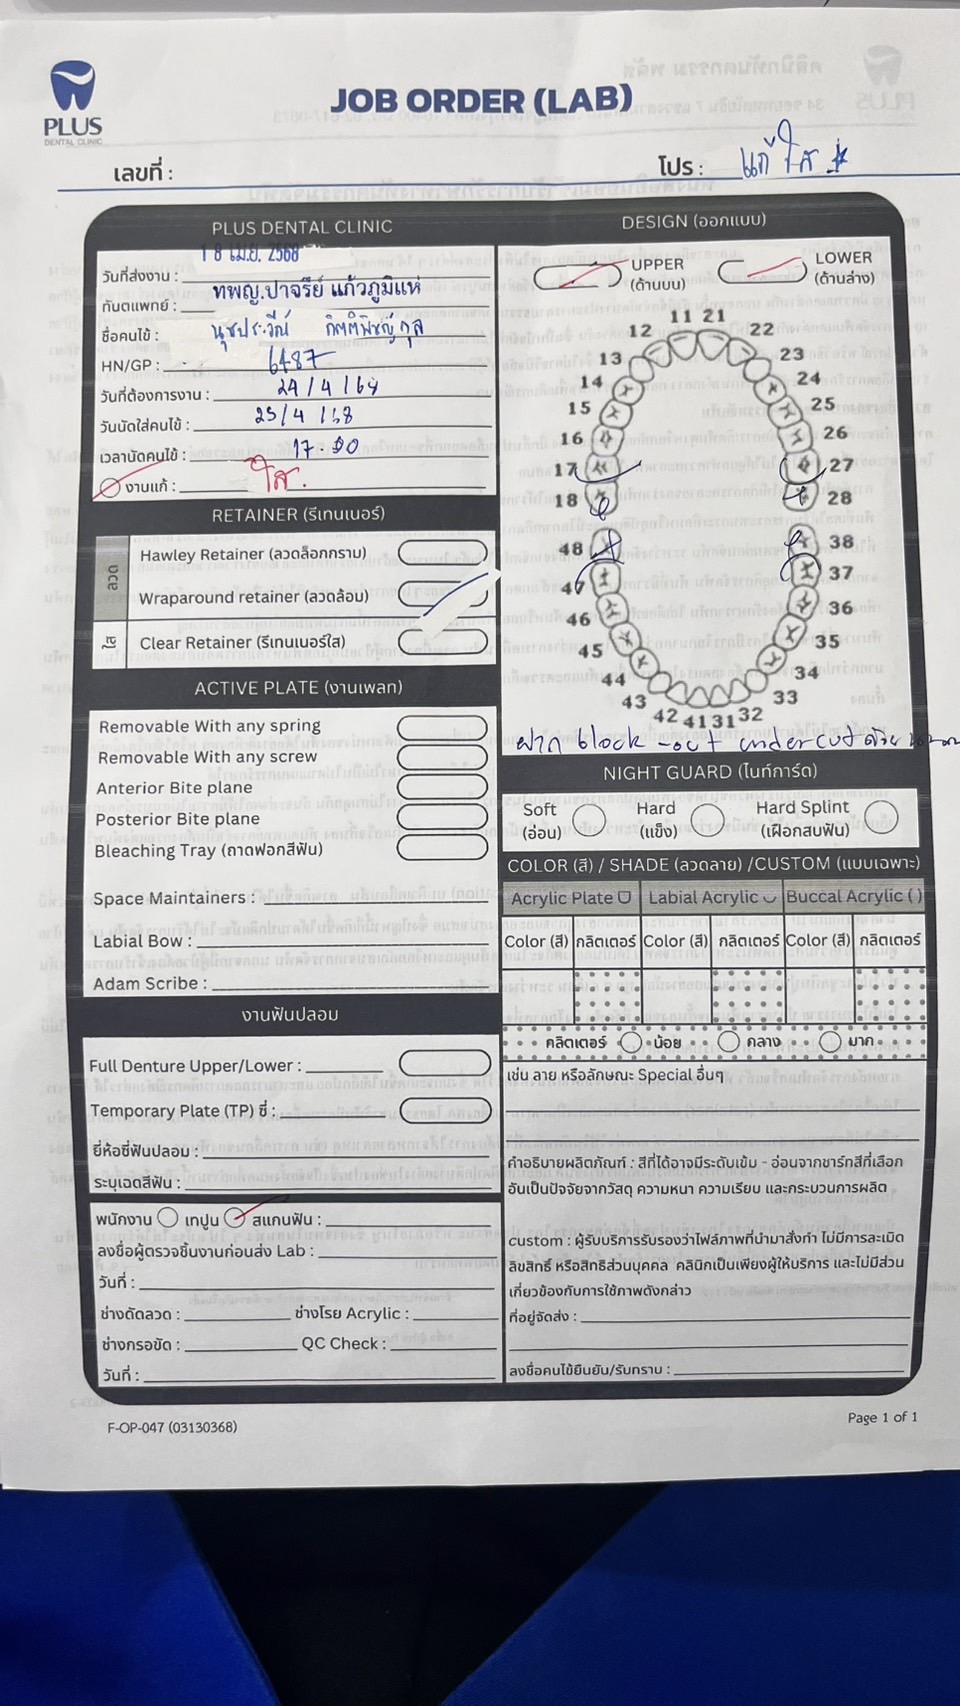 PLUS
DENTAL CLINIC
JOB ORDER (LAB)
เลขที่ :
โปร : แก้ใส
PLUS DENTAL CLINIC
วันที่ส่งงาน : 18 เม.ย. 2568
ทันตแพทย์ : ทพญ.ปาจรีย์ แก้วภูมิแห่
ชื่อคนไข้ :
HN/GP : 6487
วันที่ต้องการงาน : 24/4/68
วันนัดใส่คนไข้ : 25/4/68
เวลานัดคนไข้ : 17.00
งานแก้ : ใส.
RETAINER (รีเทนเนอร์)
ลวด
Hawley Retainer (ลวดล็อกกราม)
Wraparound retainer (ลวดล้อม)
ใส
Clear Retainer (รีเทนเนอร์ใส)
ACTIVE PLATE (งานเพลท)
Removable With any spring
Removable With any screw
Anterior Bite plane
Posterior Bite plane
Bleaching Tray (ถาดฟอกสีฟัน)
Space Maintainers :
Labial Bow :
Adam Scribe :
งานฟันปลอม
Full Denture Upper/Lower :
Temporary Plate (TP) ซี่ :
ยี่ห้อซี่ฟันปลอม :
ระบุเฉดสีฟัน :
พนักงาน เทปูน สแกนฟัน :
ลงชื่อผู้ตรวจชิ้นงานก่อนส่ง Lab :
วันที่ :
ช่างดัดลวด : ช่างโรย Acrylic :
ช่างกรอขัด : QC Check :
วันที่ :
DESIGN (ออกแบบ)
UPPER
(ด้านบน)
LOWER
(ด้านล่าง)
11 21
12 22
13 23
14 24
15 25
16 26
17 27
18 28
48 38
47 37
46 36
45 35
44 34
43 33
42 41 31 32
ฝาก block-out undercut ด้วย
NIGHT GUARD (ไนท์การ์ด)
Soft
(อ่อน)
Hard
(แข็ง)
Hard Splint
(เฝือกสบฟัน)
COLOR (สี) / SHADE (ลวดลาย) /CUSTOM (แบบเฉพาะ)
Acrylic Plate Labial Acrylic Buccal Acrylic ( )
Color (สี) กลิตเตอร์ Color (สี) กลิตเตอร์ Color (สี) กลิตเตอร์
กลิตเตอร์ น้อย กลาง มาก
เช่น ลาย หรือลักษณะ Special อื่นๆ
คำอธิบายผลิตภัณฑ์ : สีที่ได้อาจมีระดับเข้ม - อ่อนจากชาร์ทสีที่เลือก
อันเป็นปัจจัยจากวัสดุ ความหนา ความเรียบ และกระบวนการผลิต
custom : ผู้รับบริการรับรองว่าไฟล์ภาพที่นำมาสั่งทำ ไม่มีการละเมิด
ลิขสิทธิ์ หรือสิทธิส่วนบุคคล คลินิกเป็นเพียงผู้ให้บริการ และไม่มีส่วน
เกี่ยวข้องกับการใช้ภาพดังกล่าว
ที่อยู่จัดส่ง :
ลงชื่อคนไข้ยืนยัน/รับทราบ :
F-OP-047 (03130368)
Page 1 of 1